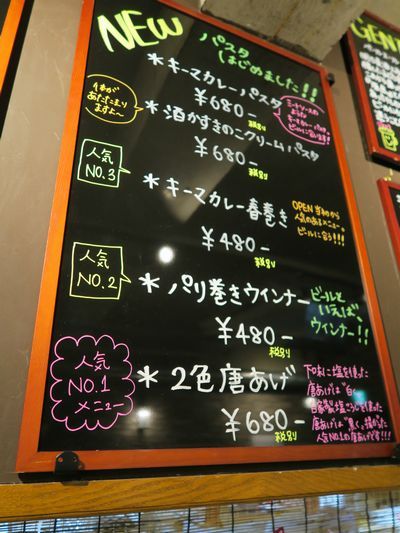 NEW
パスタ
はじめました!!
*キーマカレーパスタ
¥680-
税別
ミートソースの
ような
キーマカレーパスタ。
ビールに合います!
体が
あたたまり
ますよ〜
*酒かすきのこクリームパスタ
¥680-
税別
人気
NO.3
*キーマカレー春巻き
¥480-
税別
OPEN当初から
人気のあるメニュー。
ビールに合う!!!
人気
NO.2
*パリ巻きウインナー
¥480-
税別
ビールと
いえば、
ウインナー!!
人気
NO.1
メニュー
*2色唐あげ
¥680-
税別
下味に塩を使った
唐あげは"白"
自家製塩こうじを使った
唐あげは"黒"
人気NO.1の唐あげです!!!
GEN